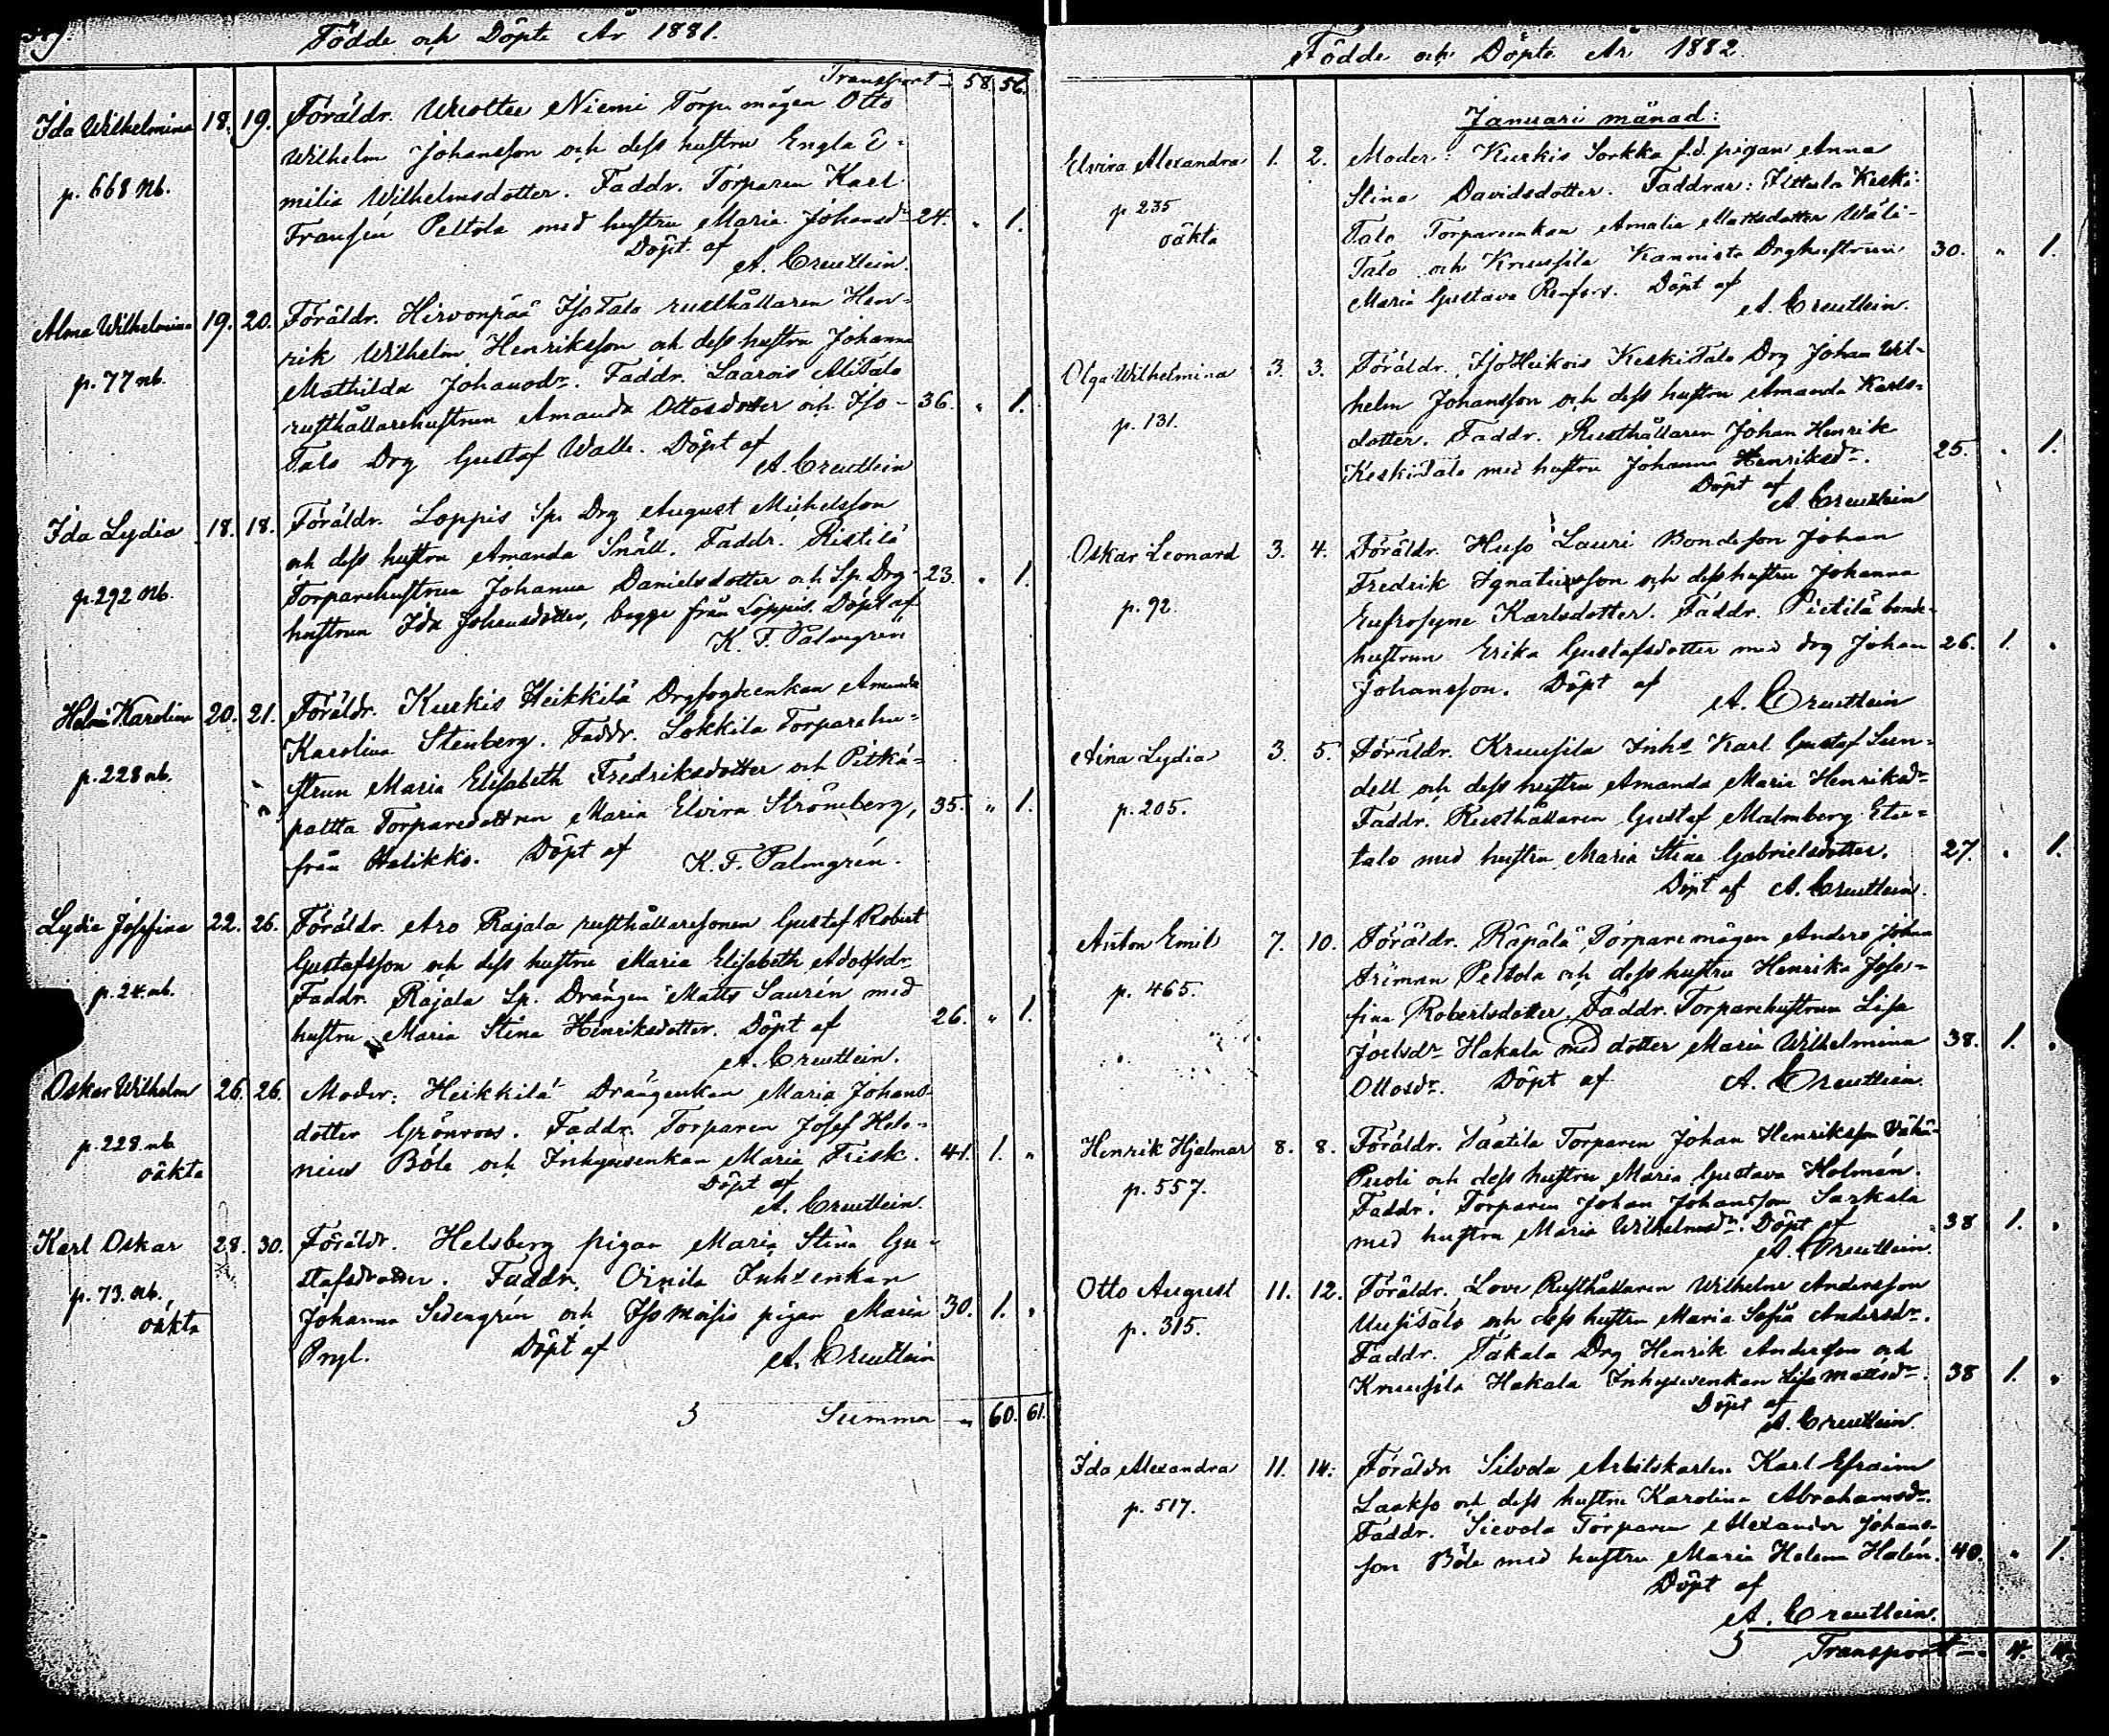 Födde och Döpte År 1881.
Transport 58 56.
Ida Wilhelmina 18. 19. Föräldr. Wuoltee Niemi Torp. mågen Otto
Wilhelm Johansson och dess hustru Engla E-
p. 668 nb. milia Wilhelmsdotter. Faddr. Torparen Karl
Fransén Peltola med hustru Maria Johansdr 24. " 1.
Döpt af
A. Creutlein.
Alma Wilhelmina 19. 20. Föräldr. Hirvonpää IsoTalo rusthållaren Hen-
rik Wilhelm Henriksson och dess hustru Johanna
p. 77 nb. Mathilda Johansdr. Faddr. Laarois AliTalo
rusthållarehustrun Amanda Ottosdotter och Iso- 36. " 1.
Talo Drg Gustaf Walle. Döpt af
A. Creutlein
Ida Lydia 18. 18. Föräldr. Loppis Sp. Drg August Michelsson
och dess hustru Amanda Snäll. Faddr. Ristilä
p. 292 nb. Torparehustrun Johanna Danielsdotter och Sp. Drg- 23. " 1.
hustrun Ida Johansdotter, begge från Loppis. Döpt af
K. F. Palmgrén
Helmi Karolina 20. 21. Föräldr. Kurkis Heikkilä Drgfogdeenkan Amanda
Karolina Stenberg. Faddr. Lökkilä Torparehu-
p. 228 nb. strun Maria Elisabeth Fredriksdotter och Pitkä-
paltta Torparedottren Maria Elvira Strömberg, 35. " 1.
från Halikko. Döpt af K. F. Palmgrén.
Lydia Josefina 22. 26. Föräldr. Aro Rajala rusthållaresonen Gustaf Robert
Gustafsson och dess hustru Maria Elisabeth Adolfsdr
p. 24. nb. Faddr. Rajala Sp. Drängen Matts Saurén med
hustru Maria Stina Henriksdotter. Döpt af 26. " 1.
A. Creutlein.
Oskar Wilhelm 26. 26. Moder: Heikkilä Drängenkan Maria Johans-
dotter Grönroos. Faddr. Torparen Josef Hele-
p. 228 nb nius Böle och Inhysesenkan Maria Frisk. 41. 1. "
oäkta Döpt af
A. Creutlein.
Karl Oskar 28. 30. Föräldr. Helsberg pigan Maria Stina Gu-
stafsdotter. Faddr. Oinila Inhsenkan
p. 73. nb. Johanna Sedengrén och Isomoisio pigan Maria 30. 1. "
oäkta Pryl. Döpt af A. Creutlein
Summa " 60. 61.
Födde och Döpte År 1882.
Januari månad:
Elvira Alexandra 1. 2. Moder: Kurkis Sorkka f.d. pigan Anna
Stina Davidsdotter. Faddrar: Ittula Keski-
p 235 Talo Torpareenkan Amalia Mattsdotter Wäli-
oäkta Talo och Kruusila Kannisto Drghustrun 30. " 1.
Maria Gustava Renfors. Döpt af
A. Creutlein.
Olga Wilhelmina 3. 3. Föräldr. IsoHeikois KeskiTalo Drg Johan Wil-
helm Johansson och dess hustru Amanda Karls-
p. 131. dotter. Faddr. Rusthållaren Johan Henrik
KeskiTalo med hustru Johanna Henriksdr. 25. " 1.
Döpt af
A. Creutlein
Oskar Leonard 3. 4. Föräldr. Huso Lauri Bondeson Johan
Fredrik Ignatiusson och dess hustru Johanna
p. 92. Eufrosyne Karlsdotter. Faddr. Pietilä bonde-
hustrun Erika Gustafsdotter med drg Johan 26. 1. "
Johansson. Döpt af
A. Creutlein
Aina Lydia 3. 5. Föräldr. Kruusila Inhs Karl Gustaf Sun-
dell och dess hustru Amanda Maria Henriksdr
p. 205. Faddr. Rusthållaren Gustaf Malmberg Ete-
talo med hustru Maria Stina Gabrielsdotter. 27. " 1.
Döpt af A. Creutlein.
Anton Emil 7. 10. Föräldr. Räpälä Torparemågen Anders Johan
Peltola och dess hustru Henrika Jose-
p. 465. fina Robertsdotter. Faddr. Torparehustrun Lisa
Joelsdr Hakala med dotter Maria Wilhelmina 38. 1. "
Ottosdr. Döpt af A. Creutlein.
Henrik Hjalmar 8. 8. Föräldr. Saatila Torparen Johan Henriksson Vähä-
p. 557. Puoli och dess hustru Maria Gustava Holmén.
Faddr. Torparen Johan Johansson Sarkala
med hustru Maria Wilhelmsdr. Döpt af 38 1. "
A. Creutlein.
Otto August 11. 12. Föräldr. Love Rusthållaren Wilhelm Andersson
p. 315. UusiTalo och dess hustru Maria Sofia Andersdr.
Faddr. Takala Drg Henrik Andersson och
Kruusila Hakala Inhysesenkan Lisa Mattsdr. 38 1. "
Döpt af
A. Creutlein.
Ida Alexandra 11. 14. Föräldr. Silvola Arbetskarlen Karl Efraim
p. 517. Laakso och dess hustru Karolina Abrahamsdr.
Faddr. Sievola Torparen Alexander Johans-
son Böle med hustru Maria Helena Halén. 40. " 1.
Döpt af
A. Creutlein.
Transport 4.